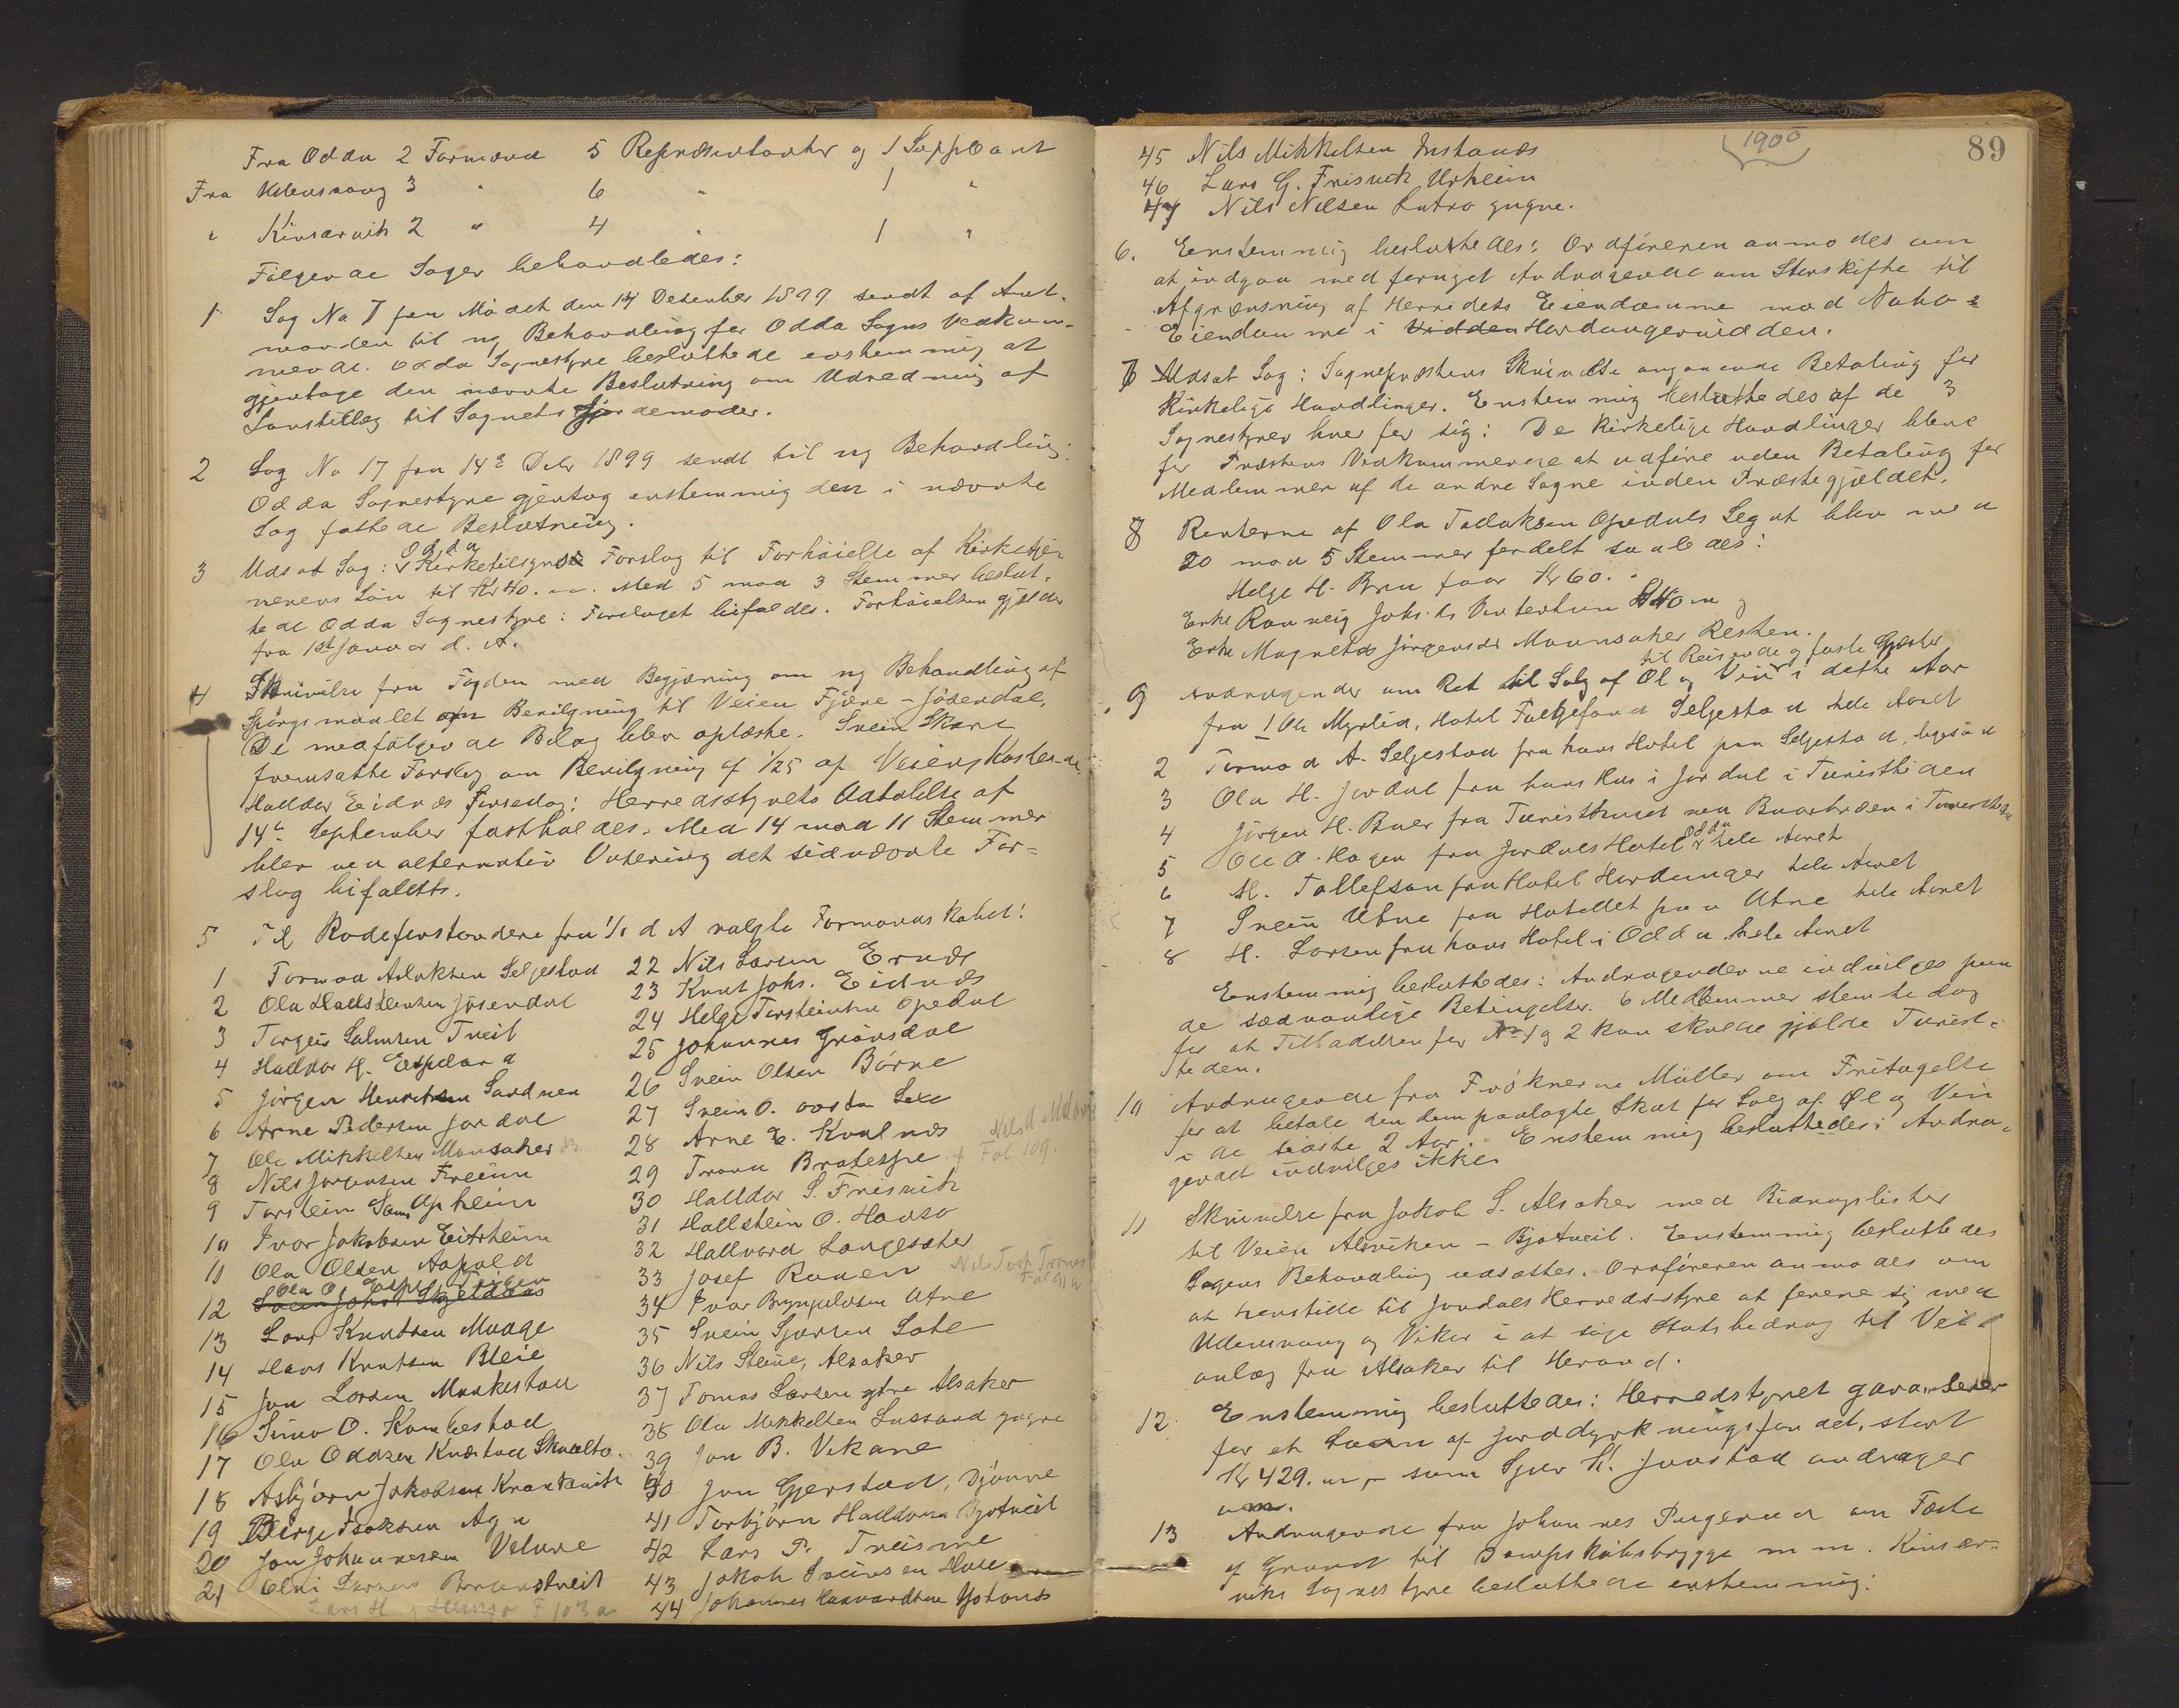 Fra Odda 2 Formænd 5 Repræsentanter og 1 Suppleant
Fra Ullensvang 3 " 6 " 1 "
" Kinsarvik 2 " 4 " 1 "
Følgende Sager behandledes:
1 Sag No 7 fra Mødet den 14 Desember 1899 sendt af Amt-
manden til ny Behandling for Odda Sogns Vedkom-
mende. Odda Sognestyre besluttede enstemmig at
gjentage den nævnte Beslutning om Udredning af
Lønstillæg til Sognets Gjordemoder.
2 Sag No 17 fra 14de Debr 1899 sendt til ny Behandling:
Odda Sognestyre gjentog enstemmig den i nævnte
Sag fattede Beslutning.
3 Udsat Sag: Odda Kirketilsyns Forslag til Forhøielse af Kirketje-
nerens Løn til Kr 40. Med 5 mod 3 Stemmer beslut-
tede Odda Sognestyre: Forslaget bifaldes. Forhøielsen gjælder
fra 1st Januar d. A.
4 Skrivelse fra Fogden med Begjæring om ny Behandling af
Spørgsmaalet om Bevilgning til Veien Fjære - Jøsendal.
De medfølgende Bilag blev oplæste. Svein Skare
fremsatte Forslag om Bevilgning af 1/25 af Veiens Kostende
Haldor Eidnæs foreslog: Herredsstyrets Udtalelse af
14de September fastholdes. Med 14 mod 11 Stemmer
blev ved alternativ Votering det sidnævnte For-
slag bifaldt.
5 Til Rodeforstandere fra 1/1 d A valgte Formandskabet:
1 Tormod Aslaksen Seljestad
2 Ola Hallsteinsen Jøsendal
3 Torgeir Salmsen Tveit
4 Haldor H. Espeland
5 Jørgen Henriksen Sandven
6 Arne Pedersen Jordal
7 Ole Mikkelsen Mansaker
8 Nils Jørgensen Freim
9 Torstein Sams Apheim
10 Ivar Jakobsen Eitrheim
11 Ola Olsen Aapaldt
12 Ola O. Espe, Teigen
13 Lars Knutsen Maage
14 Hans Knutsen Bleie
15 Jon Larsen Maakestad
16 Simo O. Kambestad
17 Ola Oddsen Knæstad Skaalto.
18 Asbjørn Jakobsen Krantveit
19 Børge Isaksen Aga
20 Jon Johannesen Velure
21
Lars H. F 103a
22 Nils Larsen Ernæs
23 Knut Johs. Eidnæs
24 Helge Torsteinsen Opedal
25 Johannes Grønsdal
26 Svein Olsen Børve
27 Svein O. Sexe
28 Arne E. Kvalnæs
29 Bratespe + Fol 109.
30 Halldor S. Frisvik
31 Hallstein O. Hauso
32 Hallvard Langesæter
33 Josef Rauen
34 Ivar Brynjulvsen Utne
35 Svein Sjursen Lote
36 Nils Steine, Alsaker
37 Tomas Larsen ytre Alsaker
38 Ola Mikkelsen Lussand yngre
39 Jon B. Vikane
40 Jon Gjerstad, Djønne
41 Torbjørn Halldorsen Bjotveit
42 Lars P. Treisme
43 Jakob Sveinsen Huse
44 Johannes Haavardsen Ystanæs
1900
89
45 Nils Mikkelsen Instanæs
46 Lars G. Frisvik Urheim
47 Nils Nilsen Lutro yngre.
6. Enstemmig besluttedes: Ordføreren anmodes om
at indgaa med fornyet Andragende om Stenskifte til
Afgrænsning af Herredets Eiendomme mod Nabo-
Eiendomme i Vidden Hardangervidden.
7 Udsat Sag: Sognepræstens Skrivelse angaaende Betaling for
Kirkelige Handlinger. Enstemmig besluttedes af de 3
Sognestyrer hver for sig: De kirkelige Handlinger blive
for Præstens Vedkommende at udføre uden Betaling for
Medlemmer af de andre Sogne inden Præstegjældet.
8 Renterne af Ola Tollaksen Opedals Legat blev med
20 mod 5 Stemmer fordelt saaledes:
Helge H. Bru faar Kr 60.
Enke Ranveig Johs. ds Vintertun 40 og
Enke Magnhild Jørgensdr Maansaker Resten.
9 Andragender om Ret til Salg af Øl og Vin til Reisende og faste Gjæster i dette Aar
fra 1 Ole Myrlid, Hotel Folgefond Seljestad hele Aaret
2 Tormod A. Seljestad fra hans Hotel paa Seljestad, ligesaa
3 Ola H. Jordal fra hans Hus i Jordal i Turisttiden
4 Jørgen H. Buer fra Turisthuset ved Buarbræen i Turisttiden
5 Ole A. Hagen fra Jordals Hotel Odda hele Aaret
6 M. Tollefsen fra Hotel Hardanger hele Aaret
7 Svein Utne fra Hotellet paa Utne hele Aaret
8 H. Larsen fra hans Hotel i Odda hele Aaret
Enstemmig besluttedes: Andragenderne indvilges paa
de sædvanlige Betingelser. 6 Medlemmer stemte dog
for at Tilladelsen for No 1 og 2 kun skulde gjælde Turist-
tiden.
10 Andragende fra Frøknerne Müller om Fritagelse
for at betale den dem paalagte Skat for Salg af Øl og Vin
i de sidste 2 Aar. Enstemmig besluttedes: Andra-
gendet indvilges ikke.
11 Skrivelse fra Jakob S. Alsaker med Bidragslister
til Veien Alsviken - Bjotveit. Enstemmig besluttedes
Sagens Behandling udsættes. Ordføreren anmodes om
at henstille til Jondals Herredsstyre at forene sig med
Ullensvang og Vikør i at søge Statsbidrag til Vei-
anlæg fra Alsaker til Herand.
12. Enstemmig besluttedes: Herredstyret garanterer
for et Laan af Jorddyrkningsfondet, stort
Kr 429. som Sjur K. Jaastad andrager
om.
13 Andragende fra Johannes Ringerud om Fæste
af Grund til Dampskibsbrygge m m. Kinsar-
viks Sognestyre besluttede enstemmig: